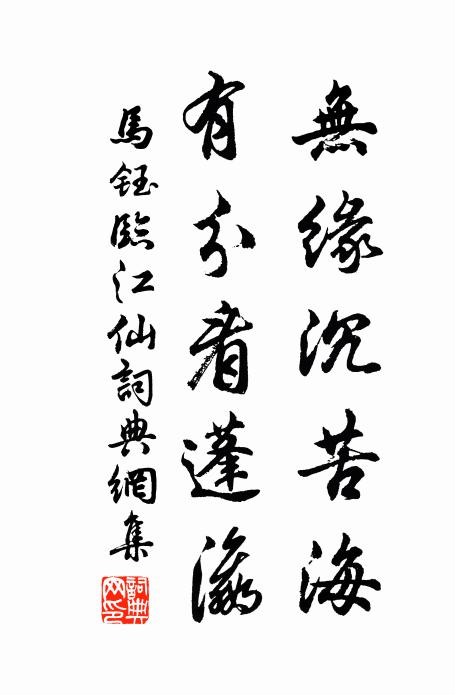 無緣沉苦海
有分看蓬瀛
馬鈺臨江仙詞典網集
詞典網印